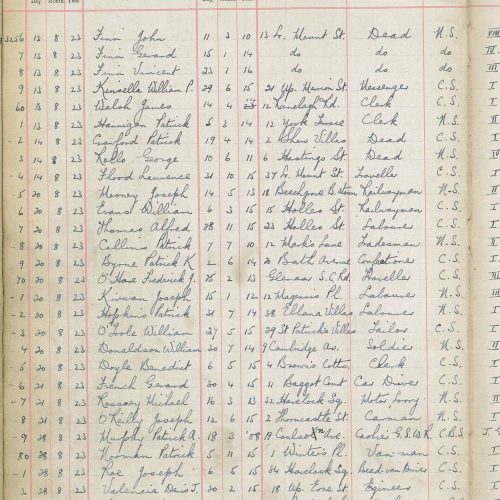 Day Month Year Day Month Year
3256 13 8 23 Finn John 11 3 10 13 L. Mount St. Dead N.S.
7 13 8 23 Finn Gerard 15 1 14 do do do
8 13 8 23 Finn Vincent 23 1 16 do do do
9 13 8 23 Kinsella William P. 29 6 15 21 Up. Merrion St. Messenger C.S.
60 13 8 23 Walsh James 14 4 12 Ranelagh Rd. Clerk C.S.
1 13 8 23 Hannigan Patrick 5 3 14 12 York Terrace Clerk N.S.
2 14 8 23 Crayford Patrick 19 4 14 2 Shaw Villas Dead C.S.
3 14 8 23 Rollo George 10 6 11 6 Hastings St. Dead N.S.
4 14 8 23 Flood Laurence 31 10 15 37 L. Mount St. Traveller C.S.
5 20 8 23 Mooney Joseph 14 5 13 18 Beechgrove Railwayman N.S.
6 20 8 23 Evans William 6 3 15 15 Holles St. Railwayman C.S.
7 20 8 23 Thomas Alfred 28 11 15 23 Holles St. Labourer C.S.
8 20 8 23 Collins Patrick 7 7 10 12 Mark's Lane Tradesman N.S.
9 20 8 23 Byrne Patrick K. 2 6 14 20 Bath Avenue Confectioner C.S.
70 20 8 23 O'Hare Frederick J. 25 2 13 Traveller C.S.
1 20 8 23 Kirwan Joseph 15 1 12 12 Magennis Pl. Labourer N.S.
2 20 8 23 Hopkins Patrick 31 7 14 38 Villas Labourer N.S.
3 20 8 23 O'Toole William 27 5 15 29 St Patricks Villas Tailor C.S.
4 20 8 23 Donaldson William 30 7 14 9 Cambridge Av. Soldier N.S.
5 20 8 23 Doyle Benedict 6 5 15 4 Brown's Cotts. Clerk C.S.
6 21 8 23 French Gerard 30 4 15 11 Baggot Court Car Driver C.S.
7 21 8 23 Michael 16 3 13 52 Havelock Sq. Motor Lorry N.S.
8 28 8 23 O'Reilly Joseph 12 6 15 2 Thorncastle St. Carman N.S.
9 28 8 23 Murphy Patrick A. 18 3 '08 19 Ave. Cashier G.S.W.R. C.B.S.
80 28 8 23 Noonan Patrick 5 11 15 1 Winters Pl. Van-man C.S.
1 28 8 23 Roe Joseph 6 5 15 54 Havelock Sq. Bread van Driver C.S.
2 28 8 23 Valencia Denis J. 20 2 15 18 Up. Erne St. Engineer C.S.